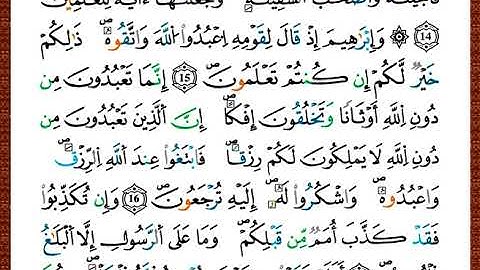 فأنجينه وأصحب السفينة وجعلنها ءاية للعلمين
۝١٤ ۞ وَإِبْرَٰهِيمَ إِذْ قَالَ لِقَوْمِهِ ٱعْبُدُواْ ٱللَّهَ وَٱتَّقُوهُ ۖ ذَٰلِكُمْ
خَيْرٌ لَّكُمْ إِن كُنتُمْ تَعْلَمُونَ ۝١٥ إِنَّمَا تَعْبُدُونَ مِن
دُونِ ٱللَّهِ أَوْثَٰنًا وَتَخْلُقُونَ إِفْكًا ۚ إِنَّ ٱلَّذِينَ تَعْبُدُونَ مِن
دُونِ ٱللَّهِ لَا يَمْلِكُونَ لَكُمْ رِزْقًا فَٱبْتَغُواْ عِندَ ٱللَّهِ ٱلرِّزْقَ
وَٱعْبُدُوهُ وَٱشْكُرُواْ لَهُ ۖ إِلَيْهِ تُرْجَعُونَ ۝١٦ وَإِن تُكَذِّبُواْ
فَقَدْ كَذَّبَ أُمَمٌ مِّن قَبْلِكُمْ ۖ وَمَا عَلَى ٱلرَّسُولِ إِلَّا ٱلْبَلَٰغُ